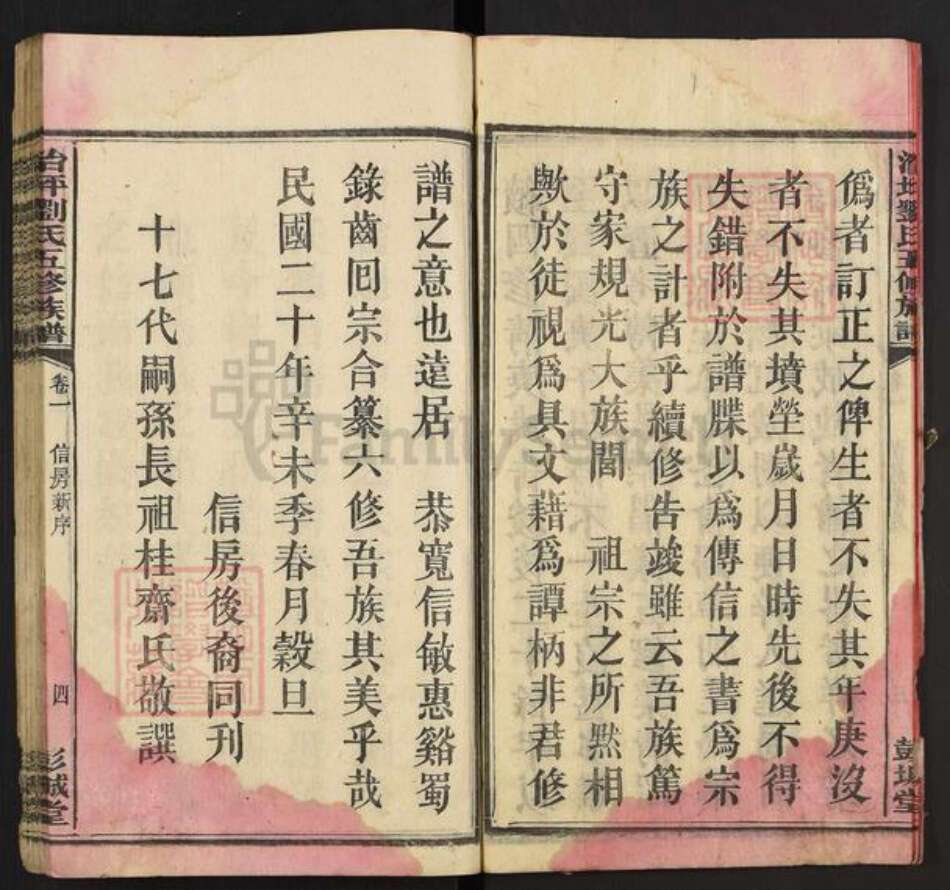 偽者訂正之俾生者不失其年庚沒
者不失其墳塋歲月日時先後不得
失錯附於譜牒以為傳信之書為宗
族之計者乎續修告竣雖云吾族篤
守家規光大族閭　祖宗之所默相
歟於徒視為具文藉為譚柄非君修
譜之意也遠居　恭寬信敏惠谿蜀
錄齒回宗合纂六修吾族其美乎哉
民國二十年辛未季春月穀旦
信房後裔同刊
十七代嗣孫長祖桂齋氏敬譔
治坪劉氏五修族譜
卷一
信房新序
四
彭城堂